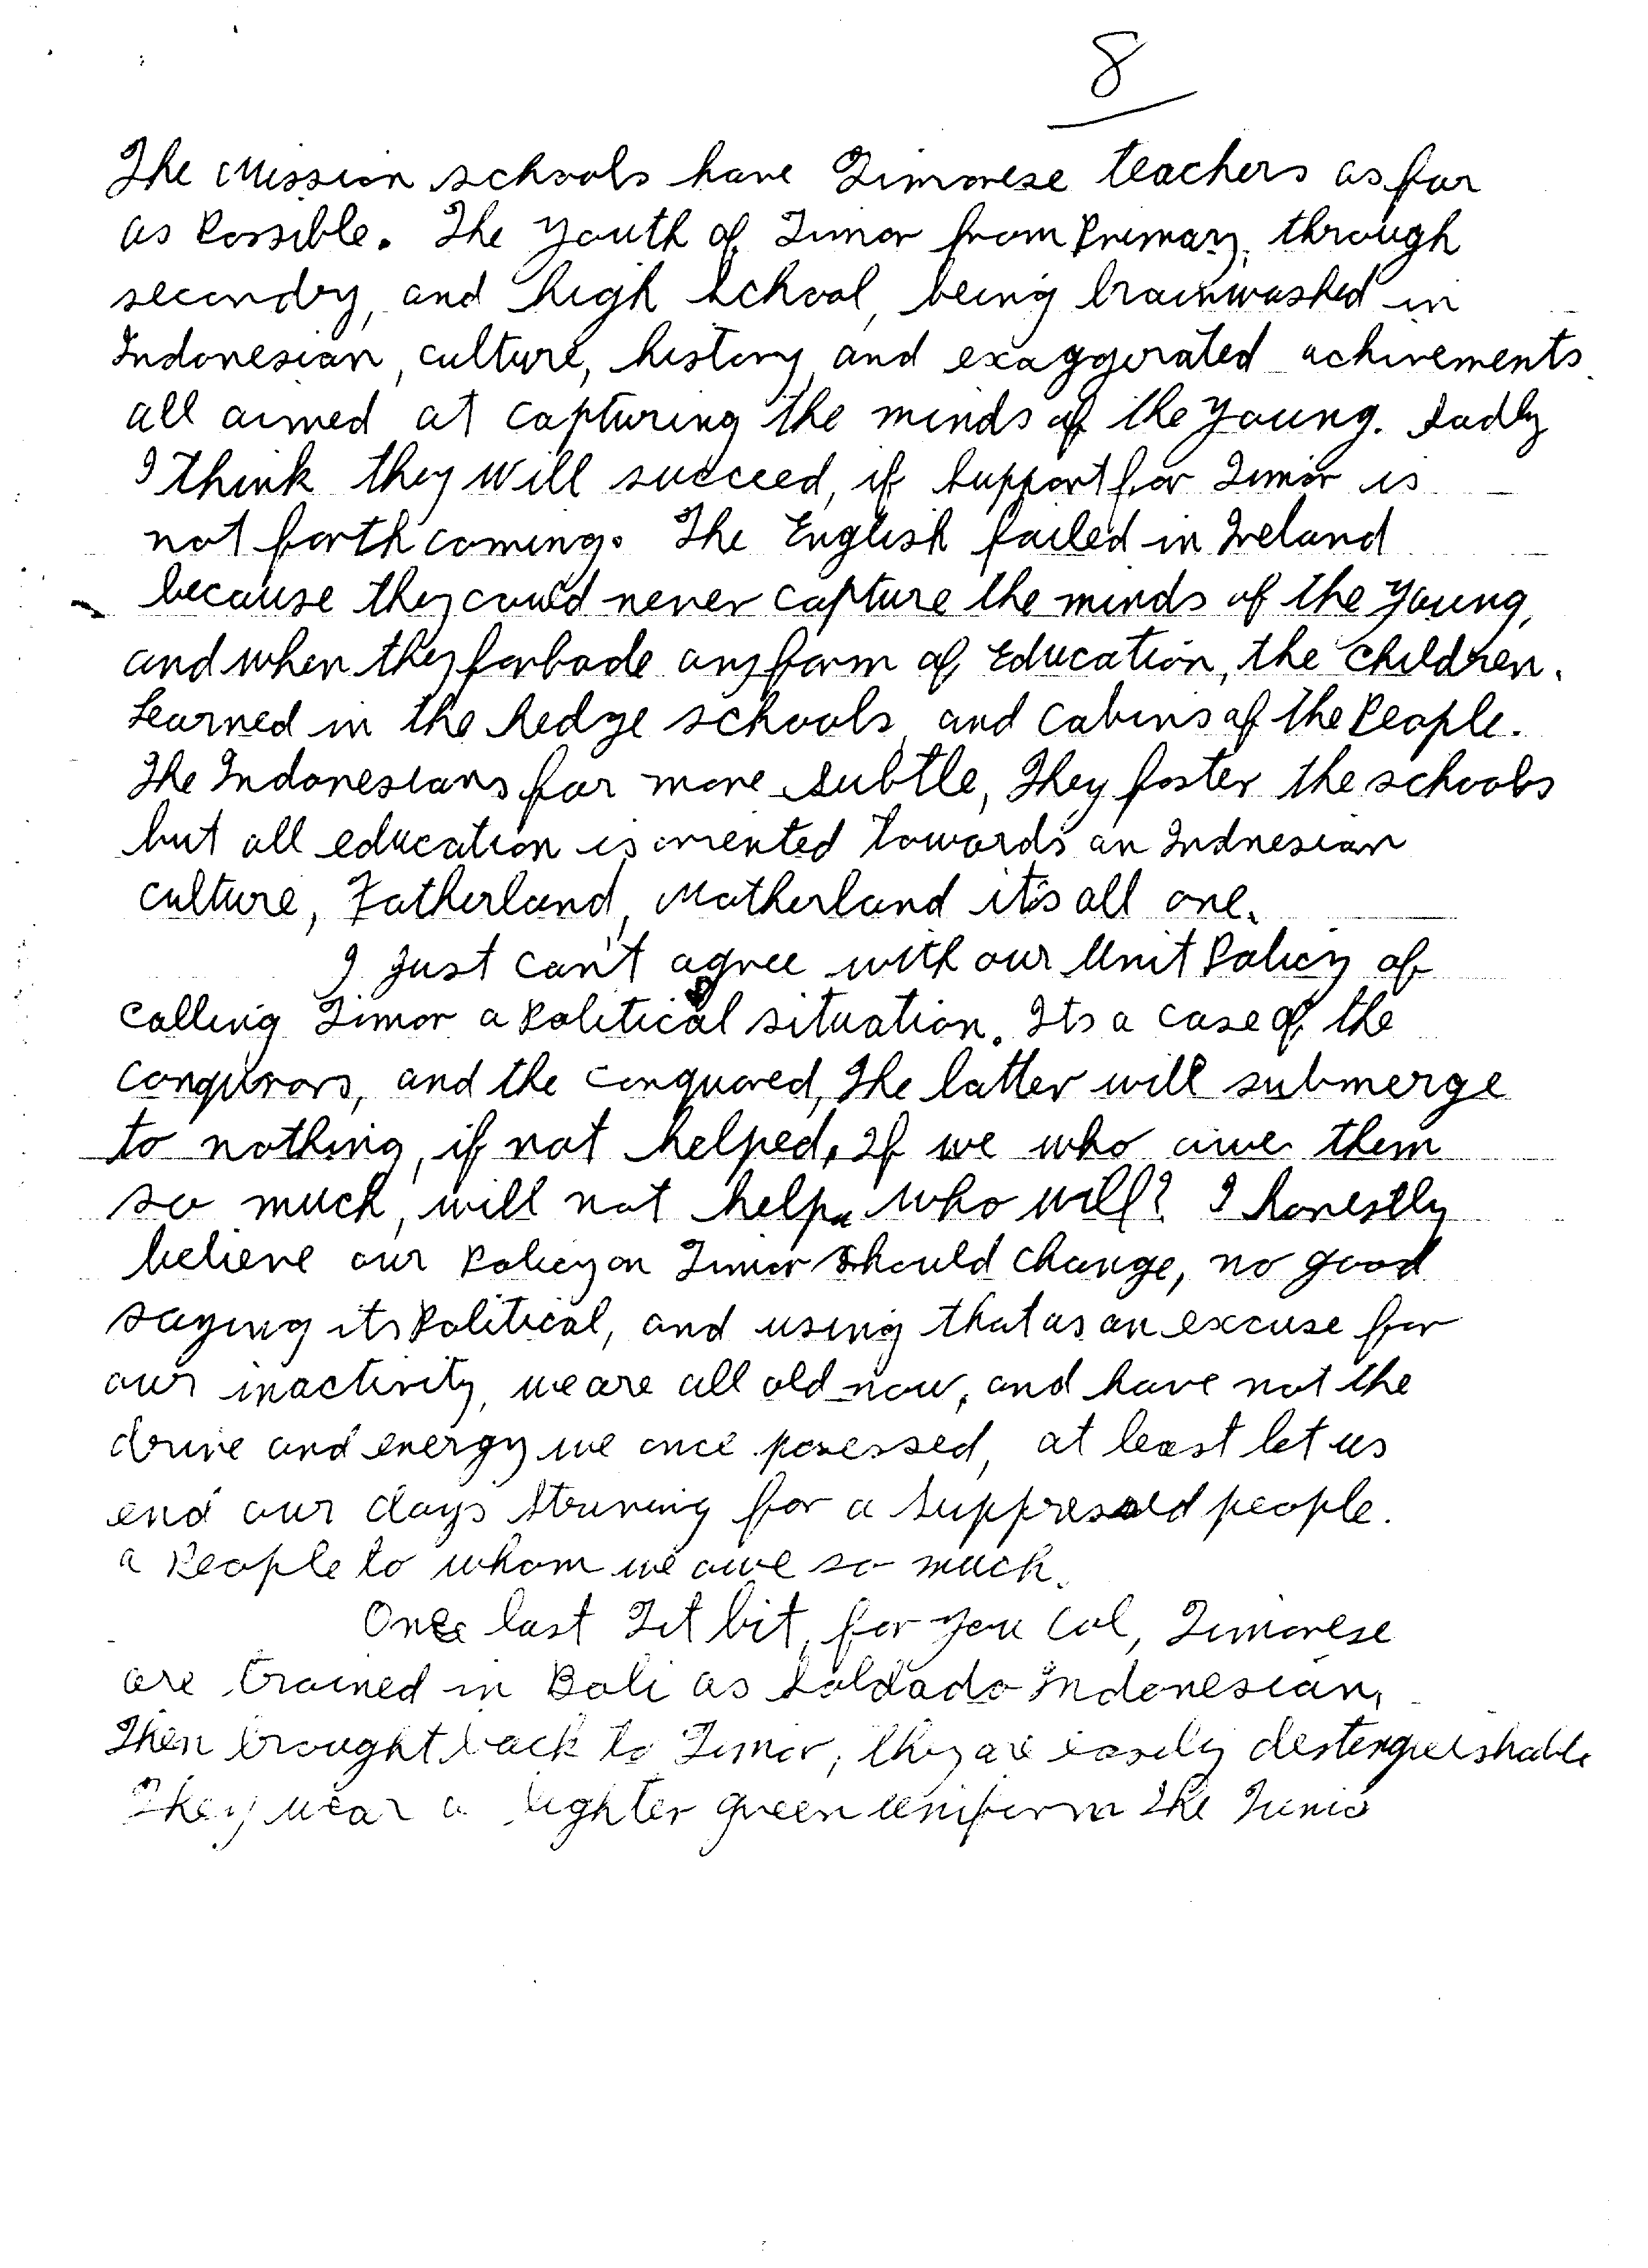 8
The Mission schools have Timorese teachers as far
as Possible. The Youth of Timor from Primary, through
secondry, and high school, being brainwashed in
Indonesian, culture, history, and exaggerated achivements
all aimed at capturing the minds of the young. Sadly
I think they will succeed, if support for Timor is
not forthcoming. The English failed in Ireland
because they could never capture the minds of the young,
and when they forbade any form of Education, the children.
Learned in the hedge schools, and cabins of the People.
The Indonesians far more subtle, They foster the schools
but all education is oriented towards an Indnesian
culture, Fatherland, Motherland it's all one.
I just can't agree with our Unit Policy of
calling Timor a Political situation. Its a case of the
conquerors, and the conquored, the latter will submerge
to nothing, if not helped. If we who owe them
so much, will not help. Who will? I honestly
believe our Policy on Timor should change, no good
saying its Political, and using that as an excuse for
our inactivity, we are all old now, and have not the
drive and energy we once posessed, at least let us
end our days striving for a suppressed people.
a People to whom we owe so much.
One last Tit bit, for you Col, Timorese
are trained in Bali as Soldado Indonesian,
Then brought back to Timor, they are easily destenguishable
They wear a lighter green uniform the Tunic